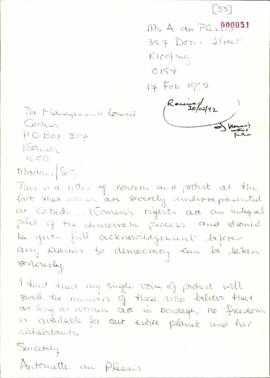 [55]
000051
Ms A du Plessis
357 Street
0157
17 Feb 1992
Received
20/02/92
The Management Council
Codesa
P O Box 307
Isando
1600
Madam/Sir,
This is a letter of concern and protest at the
fact that women are severely underrepresented
at Codesa. Women's rights are an integral
part of the democratic process and should
be given full acknowledgement before
any claims to democracy can be taken
seriously.
I trust that my single voice of protest will
swell the numbers of those who believe that
as long as women are in bondage, no freedom
is available for our entire planet and her
inhabitants.
Sincerely
Antoinette du Plessis